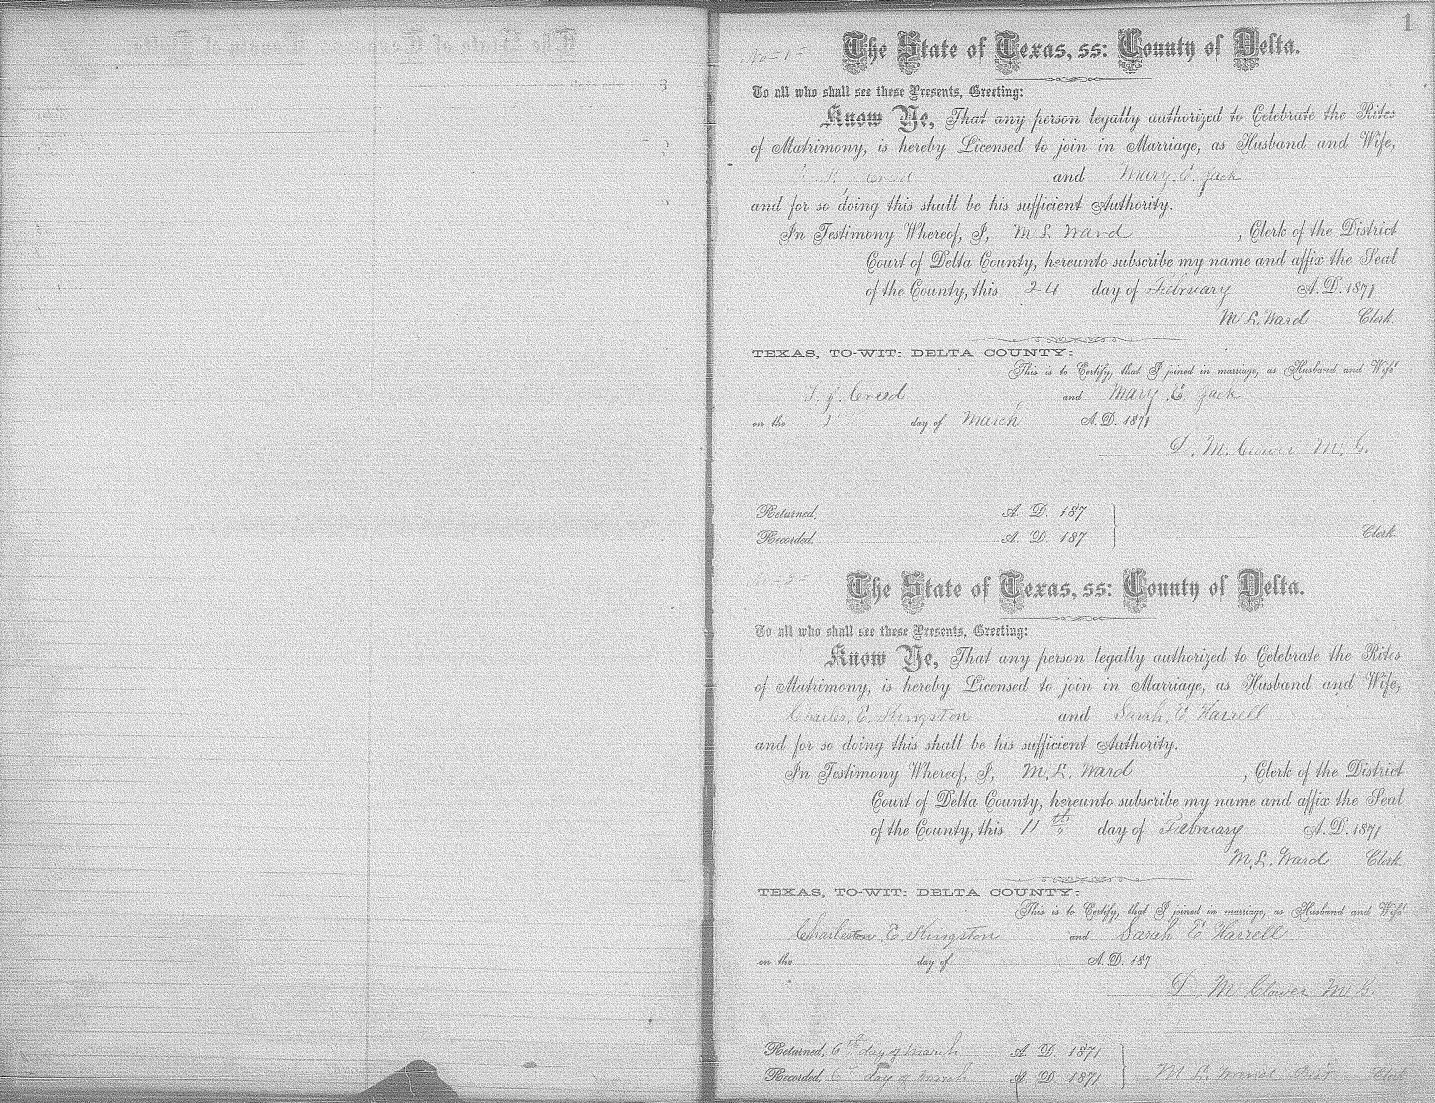 1
No-1-
The State of Texas, ss: County of Delta.
To all who shall see these Presents, Greeting:
Know Ye, That any person legally authorized to Celebrate the Rites
of Matrimony, is hereby Licensed to join in Marriage, as Husband and Wife,
Creed and Mary. E. Jack
and for so doing this shall be his sufficient Authority.
In Testimony Whereof, I, M L Ward , Clerk of the District
Court of Delta County, hereunto subscribe my name and affix the Seal
of the County, this 24 day of February A. D. 1871
M L. Ward Clerk.
TEXAS, TO-WIT: DELTA COUNTY:
This is to Certify, that I joined in marriage, as Husband and Wife
J. Creed and Mary. E. Jack
on the 3 day of March A. D. 1871
D. M. Clower M. G.
Returned, A. D. 187
Recorded, A. D. 187 Clerk.
No-2-
The State of Texas, ss: County of Delta.
To all who shall see these Presents, Greeting:
Know Ye, That any person legally authorized to Celebrate the Rites
of Matrimony, is hereby Licensed to join in Marriage, as Husband and Wife,
Charles. E. Kingston and Sarah. E. Harrell
and for so doing this shall be his sufficient Authority.
In Testimony Whereof, I, M. L. Ward , Clerk of the District
Court of Delta County, hereunto subscribe my name and affix the Seal
of the County, this 11th day of February A. D. 1871
M. L. Ward Clerk
TEXAS, TO-WIT: DELTA COUNTY:
This is to Certify, that I joined in marriage, as Husband and Wife
Charleston E Kingston and Sarah E Harrell
on the day of A. D. 187
D. M Clower M G.
Returned, 6th day of March A. D. 1871
Recorded, 6th day of March A. D. 1871 M L Ward Dist Clerk